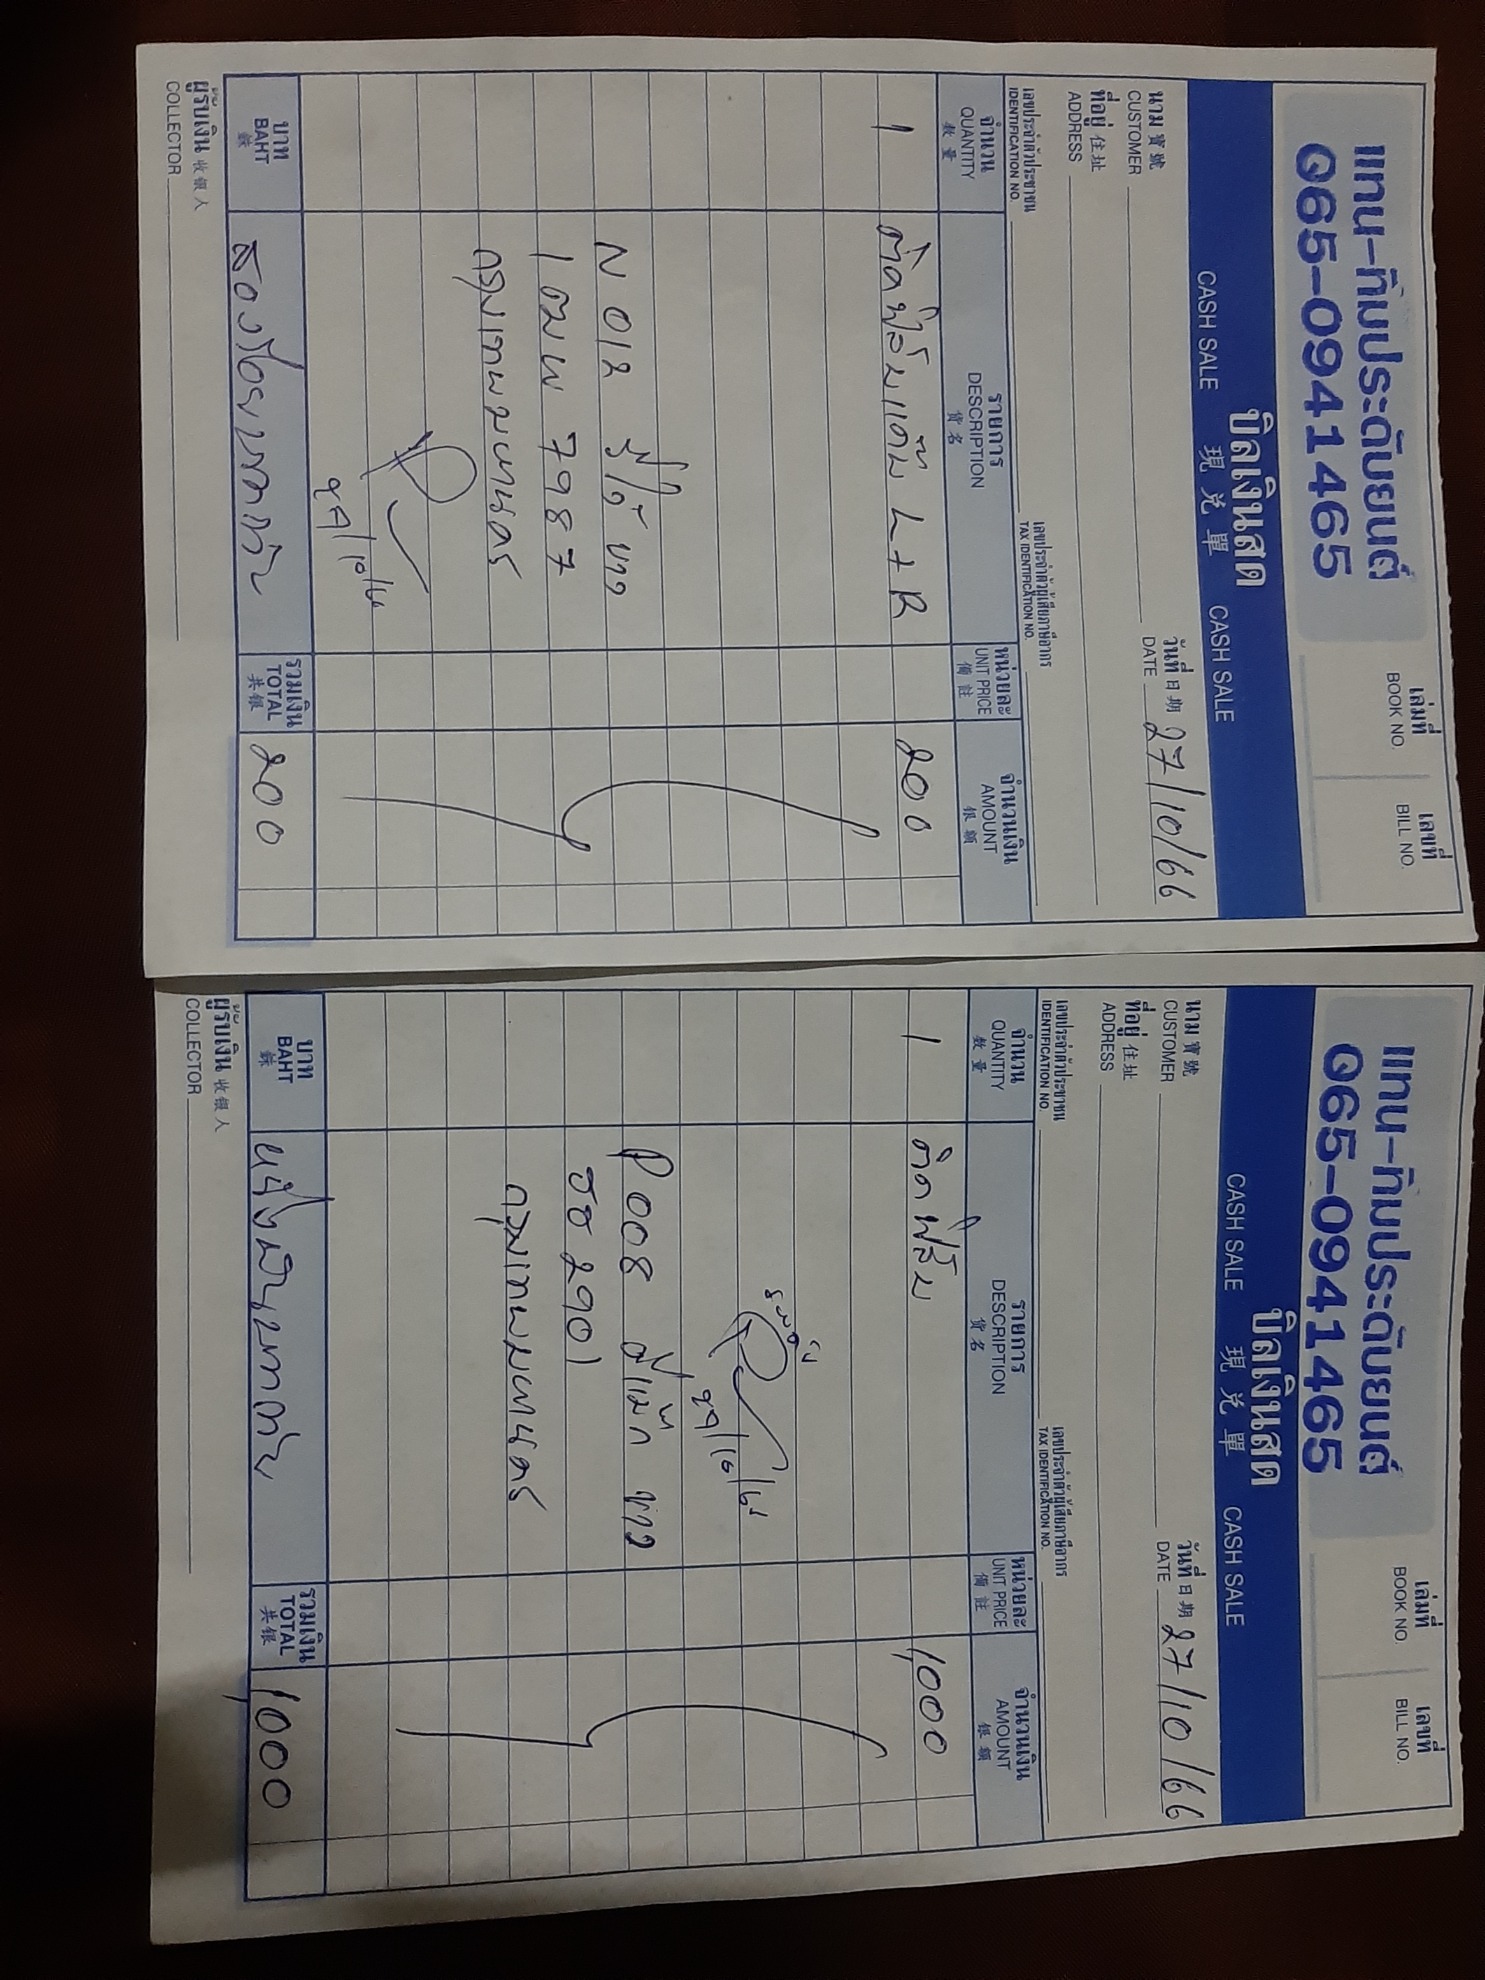 แทน-ทิมประดับยนต์
065-0941465
เล่มที่
BOOK NO.
เลขที่
BILL NO.
บิลเงินสด
CASH SALE 現兌單 CASH SALE
นาม 寶號
CUSTOMER
วันที่ 日期
DATE 27/10/66
ที่อยู่ 住址
ADDRESS
เลขประจำตัวประชาชน
IDENTIFICATION NO.
เลขประจำตัวผู้เสียภาษีอากร
TAX IDENTIFICATION NO.
จำนวน
QUANTITY
數量
รายการ
DESCRIPTION
貨名
หน่วยละ
UNIT PRICE
備註
จำนวนเงิน
AMOUNT
銀額
1 ติดฟิล์มแค๊ป L+R 200
N 012 รีโว้ ขาว
1 ฒพ 7987
กรุงเทพมหานคร
บาท
BAHT
銖
สองร้อยบาทถ้วน
รวมเงิน
TOTAL
共銀
200
ผู้รับเงิน 收銀人
COLLECTOR
แทน-ทิมประดับยนต์
065-0941465
เล่มที่
BOOK NO.
เลขที่
BILL NO.
บิลเงินสด
CASH SALE 現兌單 CASH SALE
นาม 寶號
CUSTOMER
วันที่ 日期
DATE 27/10/66
ที่อยู่ 住址
ADDRESS
เลขประจำตัวประชาชน
IDENTIFICATION NO.
เลขประจำตัวผู้เสียภาษีอากร
TAX IDENTIFICATION NO.
จำนวน
QUANTITY
數量
รายการ
DESCRIPTION
貨名
หน่วยละ
UNIT PRICE
備註
จำนวนเงิน
AMOUNT
銀額
1 ติดฟิล์ม 1,000
P008 ดีแม๊ก ขาว
ฮฮ 2901
กรุงเทพมหานคร
บาท
BAHT
銖
หนึ่งพันบาทถ้วน
รวมเงิน
TOTAL
共銀
1,000
ผู้รับเงิน 收銀人
COLLECTOR